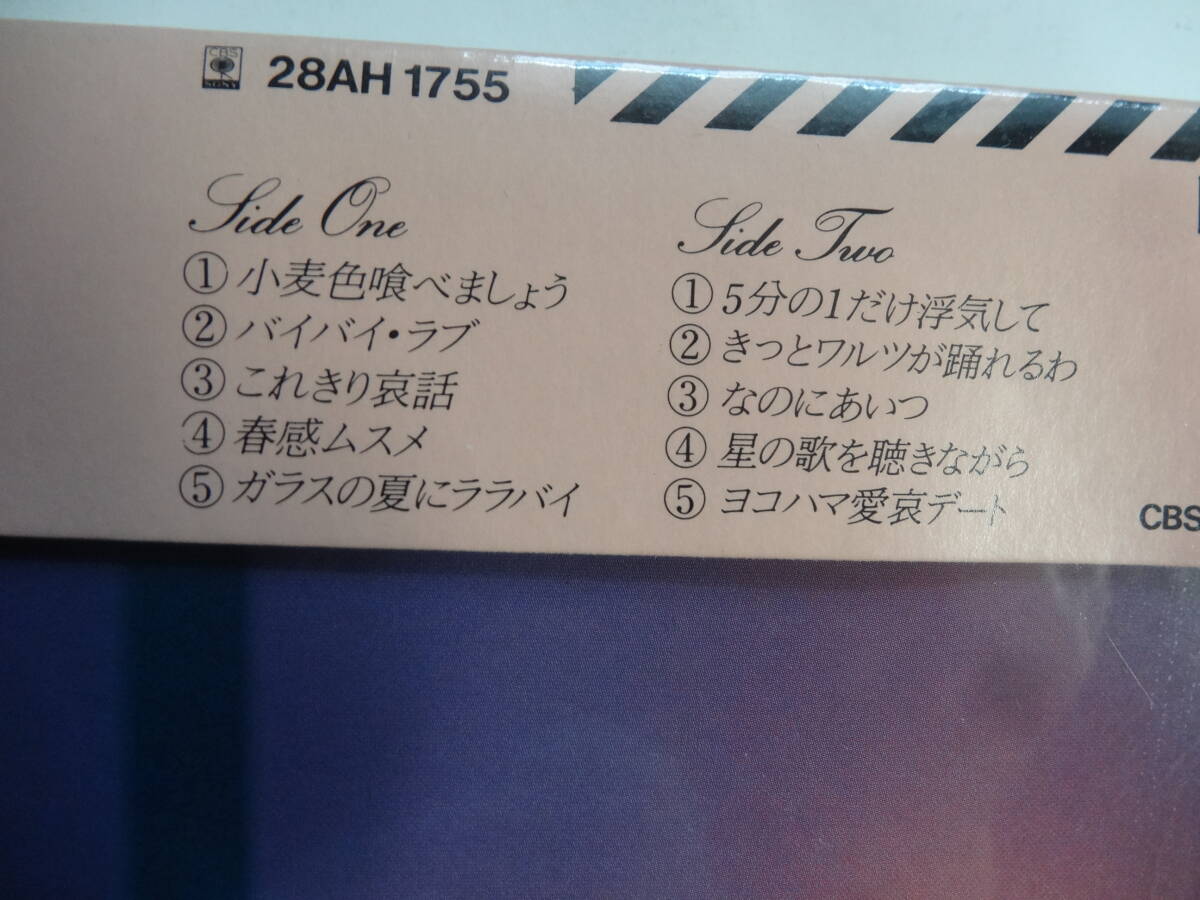 CBS
SONY
28AH 1755
Side One
① 小麦色喰べましょう
② バイバイ・ラブ
③ これきり哀話
④ 春感ムスメ
⑤ ガラスの夏にララバイ
Side Two
① 5分の1だけ浮気して
② きっとワルツが踊れるわ
③ なのにあいつ
④ 星の歌を聴きながら
⑤ ヨコハマ愛哀デート
CBS